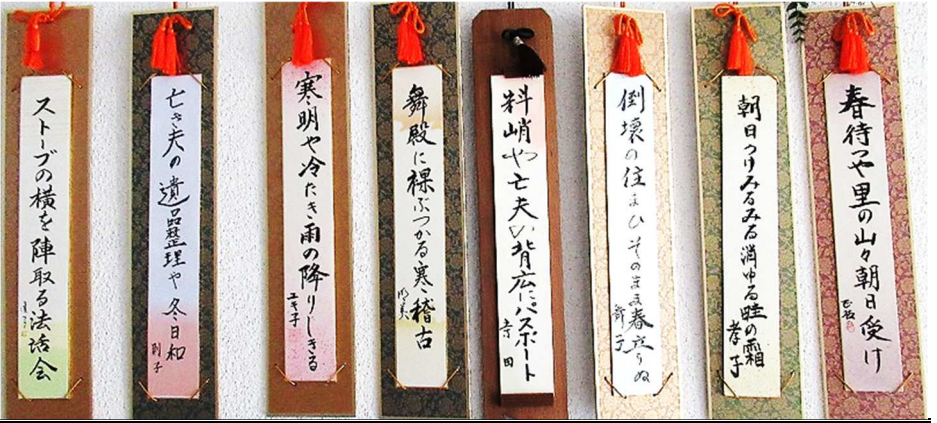 春待つや里の山々朝日受け
朝日うけみるみる消ゆる畦の霜
孝子
倒壊の住まひそのまま春立ちぬ
舞子
料峭や亡夫の背広にパスポート
舞殿に裸ぶつかる寒稽古
寒明や冷たき雨の降りしきる
ユキ子
亡き夫の遺品整理や冬日和
則子
ストーブの横を陣取る法話会